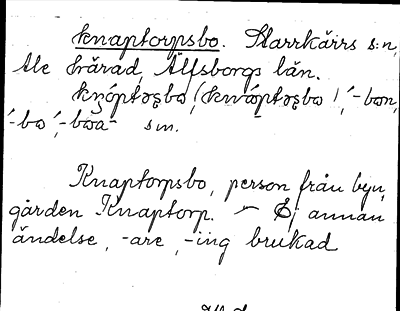 knaptorpsbo. Starrkärrs s:n,
Ale härad, Älfsborgs län.
-bon,
-bo, -boa- sm.
Knaptorpsbo, person från byn,
gården Knaptorp. — Ej annan
ändelse, -are, -ing brukad